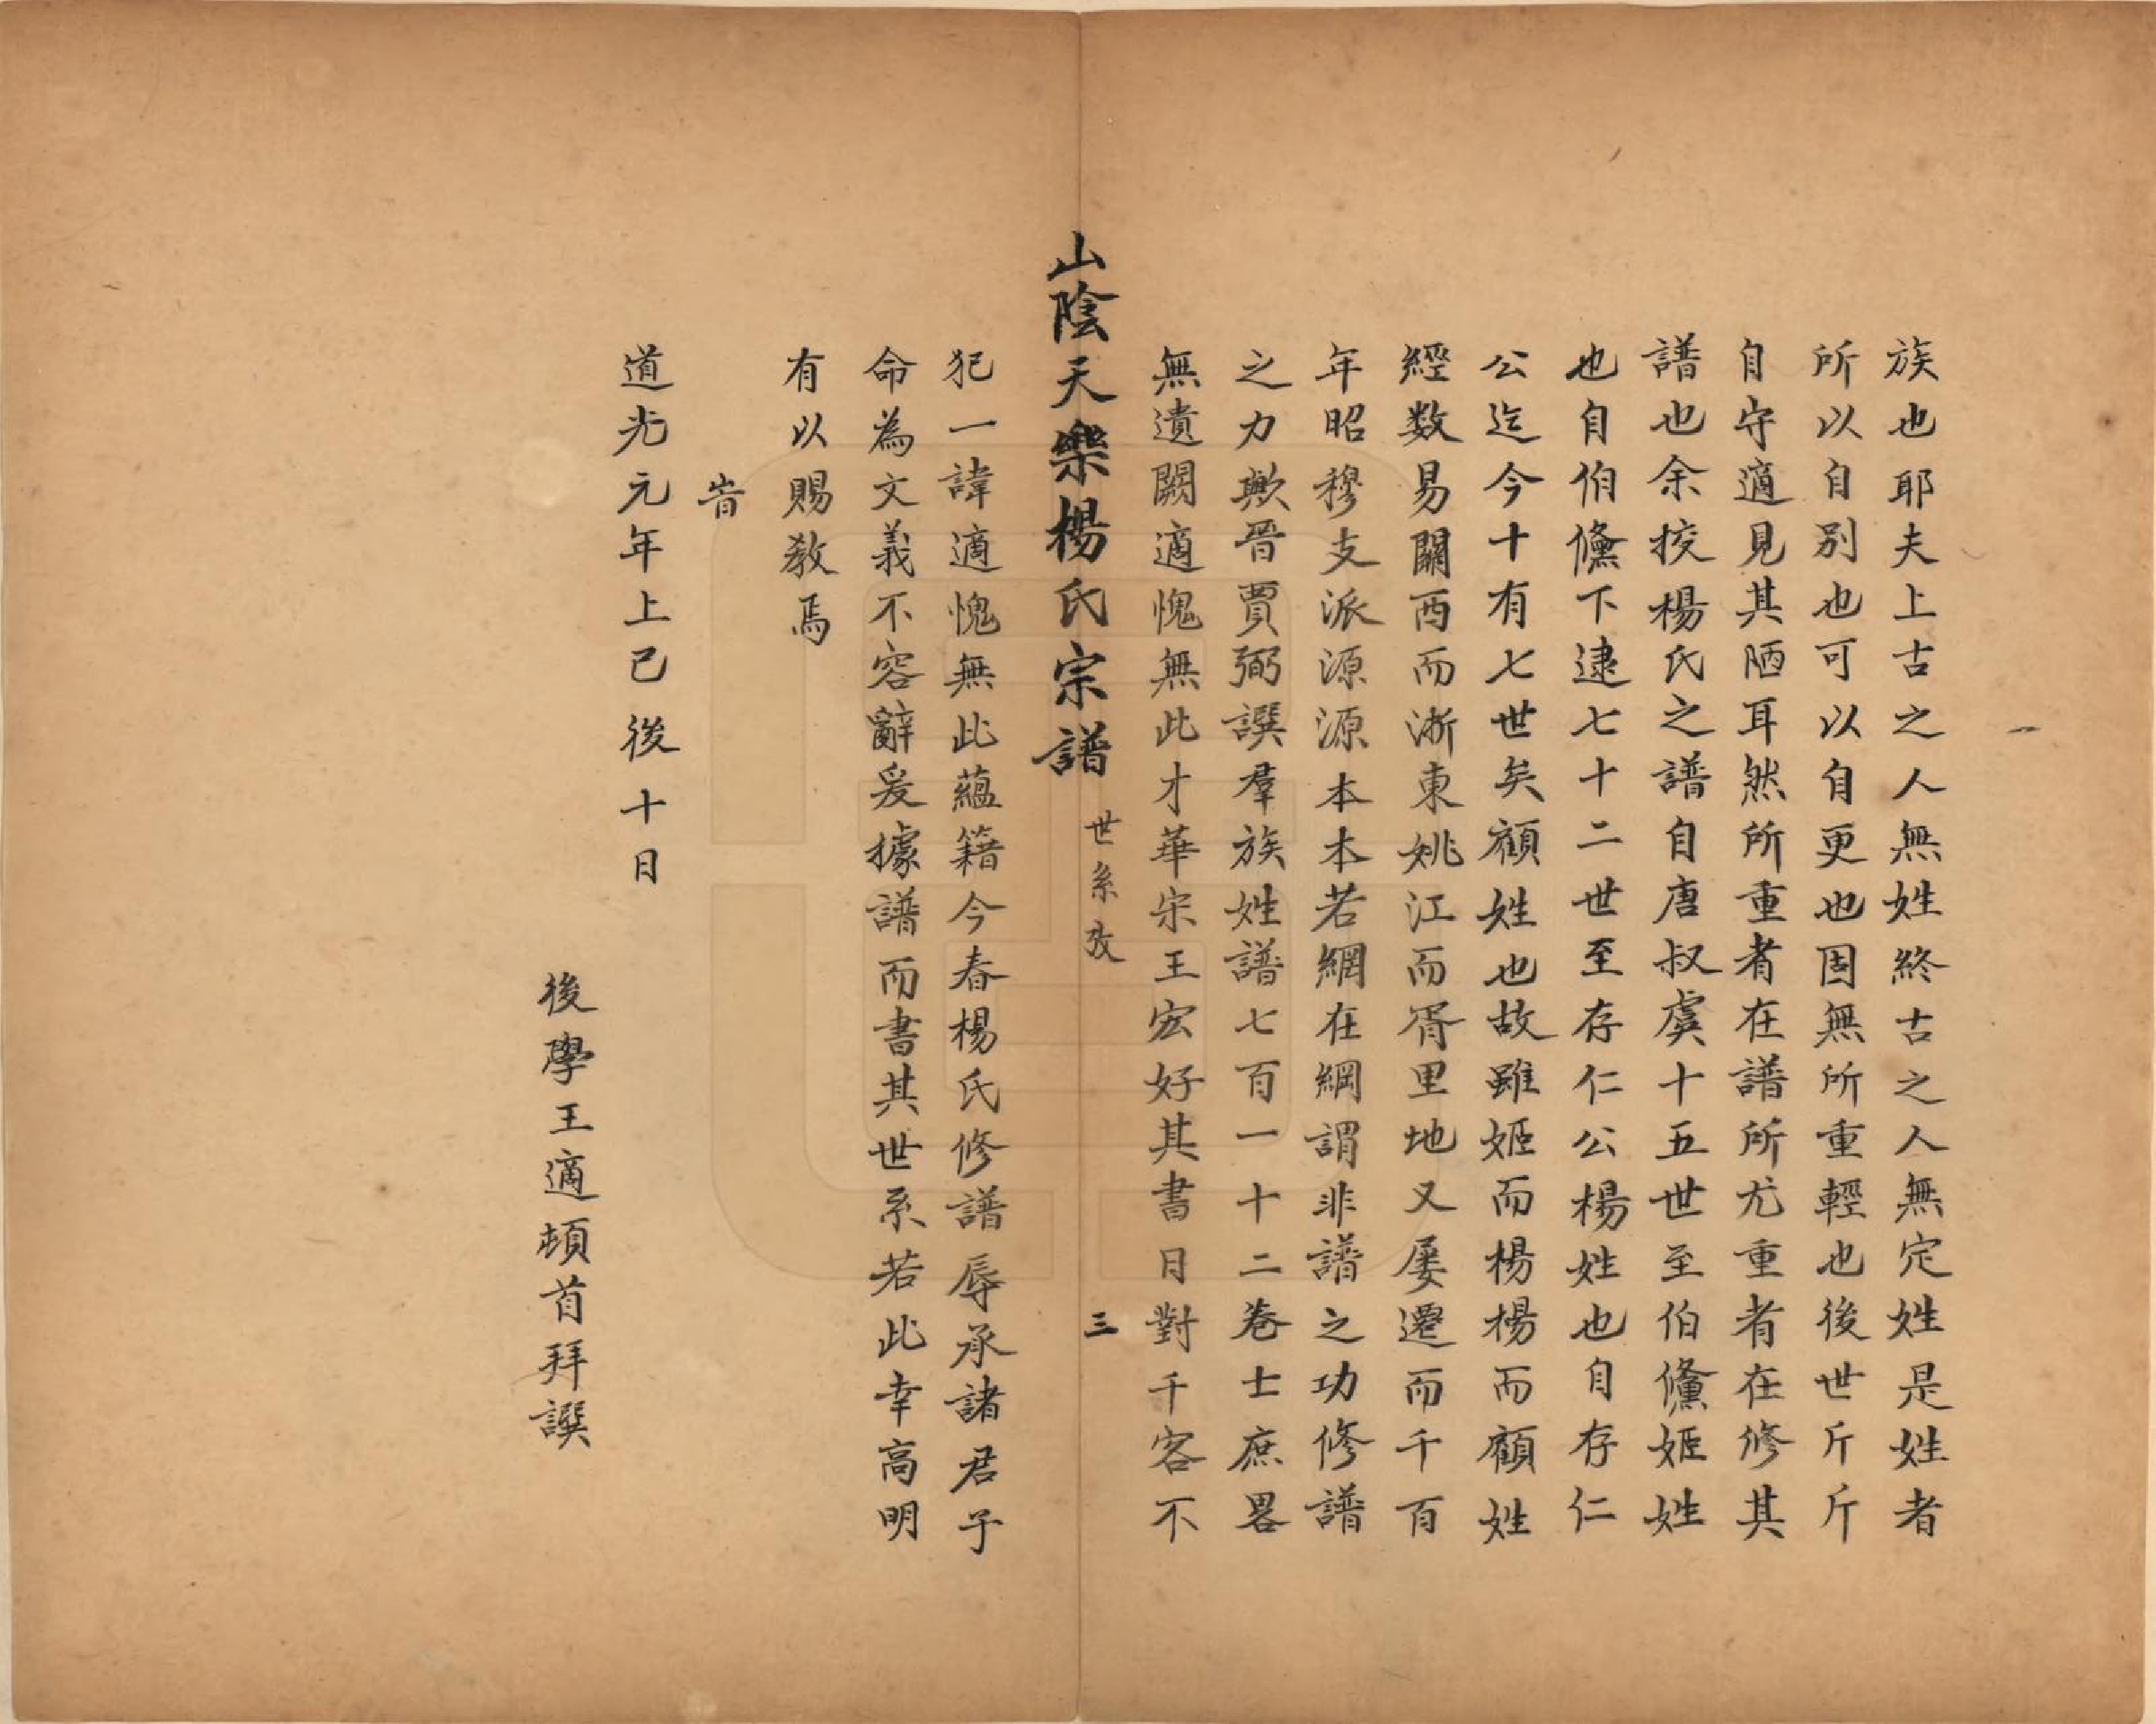 族也耶夫上古之人無姓終古之人無定姓是姓者
所以自別也可以自更也固無所重輕也後世斤斤
自守適見其陋耳然所重者在譜所尤重者在修其
譜也余挍楊氏之譜自唐叔虞十五世至伯儵姬姓
也自伯儵下逮七十二世至存仁公楊姓也自存仁
公迄今十有七世矣顧姓也故雖姬而楊楊而顧姓
經数易關西而淅東姚江而胥里地又屡遷而千百
年昭穆支派源源本本若網在綱謂非譜之功修譜
之力歟晉賈弼譔羣族姓譜七百一十二卷士庶畧
無遺闕適愧無此才華宋王宏好其書日對千客不
山陰天樂楊氏宗譜 世系攷 三
犯一諱適愧無此蘊籍今春楊氏修譜辱承諸君子
命為文義不容辭爰據譜而書其世系若此幸高明
有以賜教焉
旹
道光元年上巳後十日
後學王適頓首拜譔